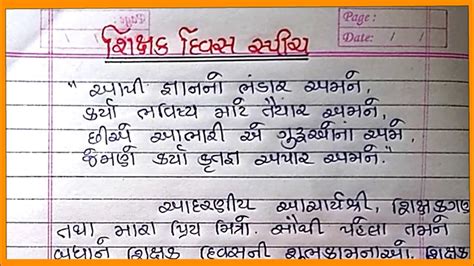 Page :
Date: / /
શિક્ષક દિવસ સ્પીચ
"આપી જ્ઞાનનો ભંડાર અમને,
કર્યા ભવિષ્ય માટે તૈયાર અમને,
છીએ આભારી એ ગુરુઓનાં અમે,
જેમણે કર્યા કૃતજ્ઞ અપાર અમને."
આદરણીય આચાર્યશ્રી, શિક્ષકગણ
તથા મારા પ્રિય મિત્રો. સૌથી પહેલા તમને
બધાને શિક્ષક દિવસની શુભકામનાઓ. શિક્ષક